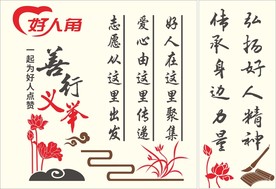 好人角
一起为好人点赞
善行义举
好人在这里聚集
爱心由这里传递
志愿从这里出发
弘扬好人精神
传承身边力量